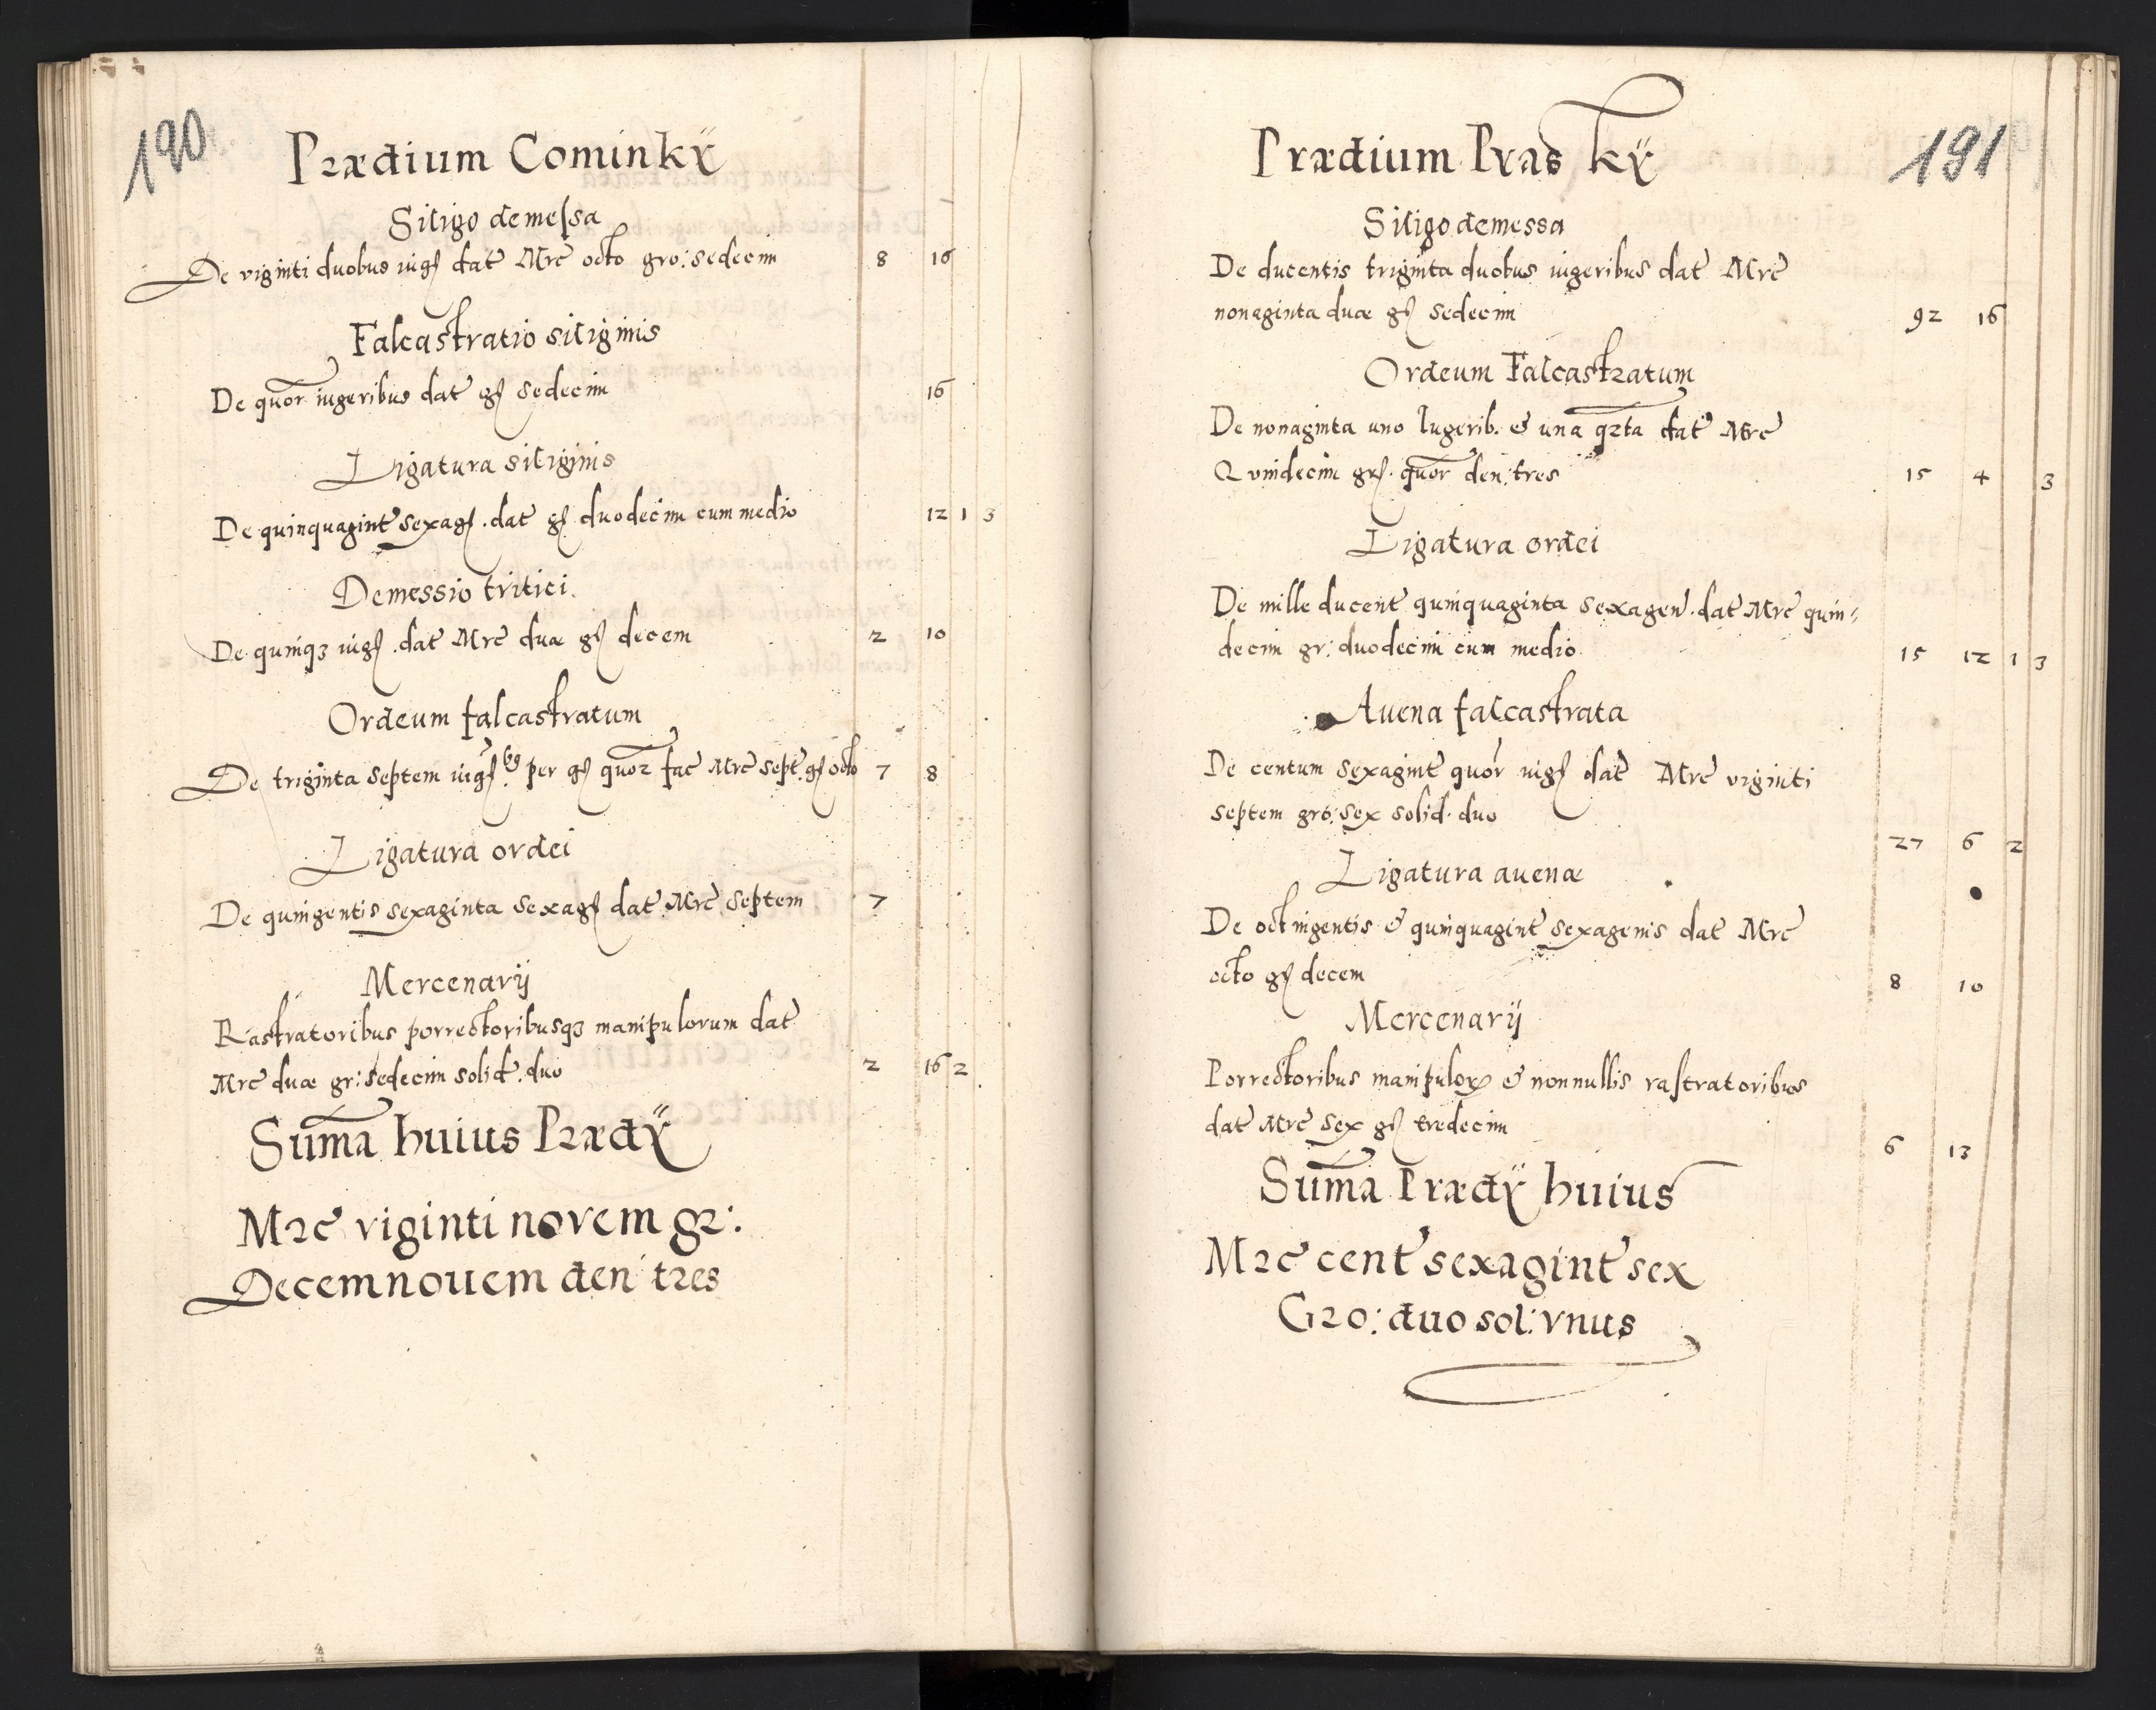 190
Prædium Cominkÿ
Siligo demeſsa
De viginti duobus iugſ dat Mrc octo gro: sedecim 8 16
Falcastratio siliginis
De quor iugeribus dat gſ sedecim 16
Ligatura siliginis
De quinquagint sexagſ. dat gſ duodecim cum medio 12 1 3
Demessio tritici.
De quinqȝ iugſ. dat Mrc duæ gſ decem 2 10
Ordeum falcastratum
De triginta septem iugſ per gſ quor fac Mrc sept. gſ octo 7 8
Ligatura ordei
De quingentis sexaginta sexagſ dat Mrc septem 7
Mercenarij
Rastratoribus porrectoribusqȝ manipulorum dat
Mrc duæ gr: sedecim solid. duo 2 16 2
Suma huius Prædÿ
Mrc viginti novem gr:
Decemnouem den tres
191
Prædium Pras kÿ
Siligo demessa
De ducentis triginta duobus iugeribus dat Mrc
nonaginta duæ gſ sedecim 92 16
Ordeum Falcastratum
De nonaginta uno Iugerib. & una qrta dat Mrc
Quindecim grſ. quor den: tres 15 4 3
Ligatura ordei
De mille ducent quinquaginta sexagen. dat Mrc quin⸗
decim gr: duodecim cum medio 15 12 1 3
Auena falcastrata
De centum sexagint quor iugſ dat Mrc viginti
septem gro: sex solid. duo 27 6 2
Ligatura auenæ
De octingentis & quinquagint sexagenis dat Mrc
octo gſ decem 8 10
Mercenarij
Porrectoribus manipuloꝝ & nonnullis raſtratoribus
dat Mrc sex gſ tredecim 6 13
Suma Prædÿ huius
Mrc cent sexagint sex
Gro: duo sol: vnus